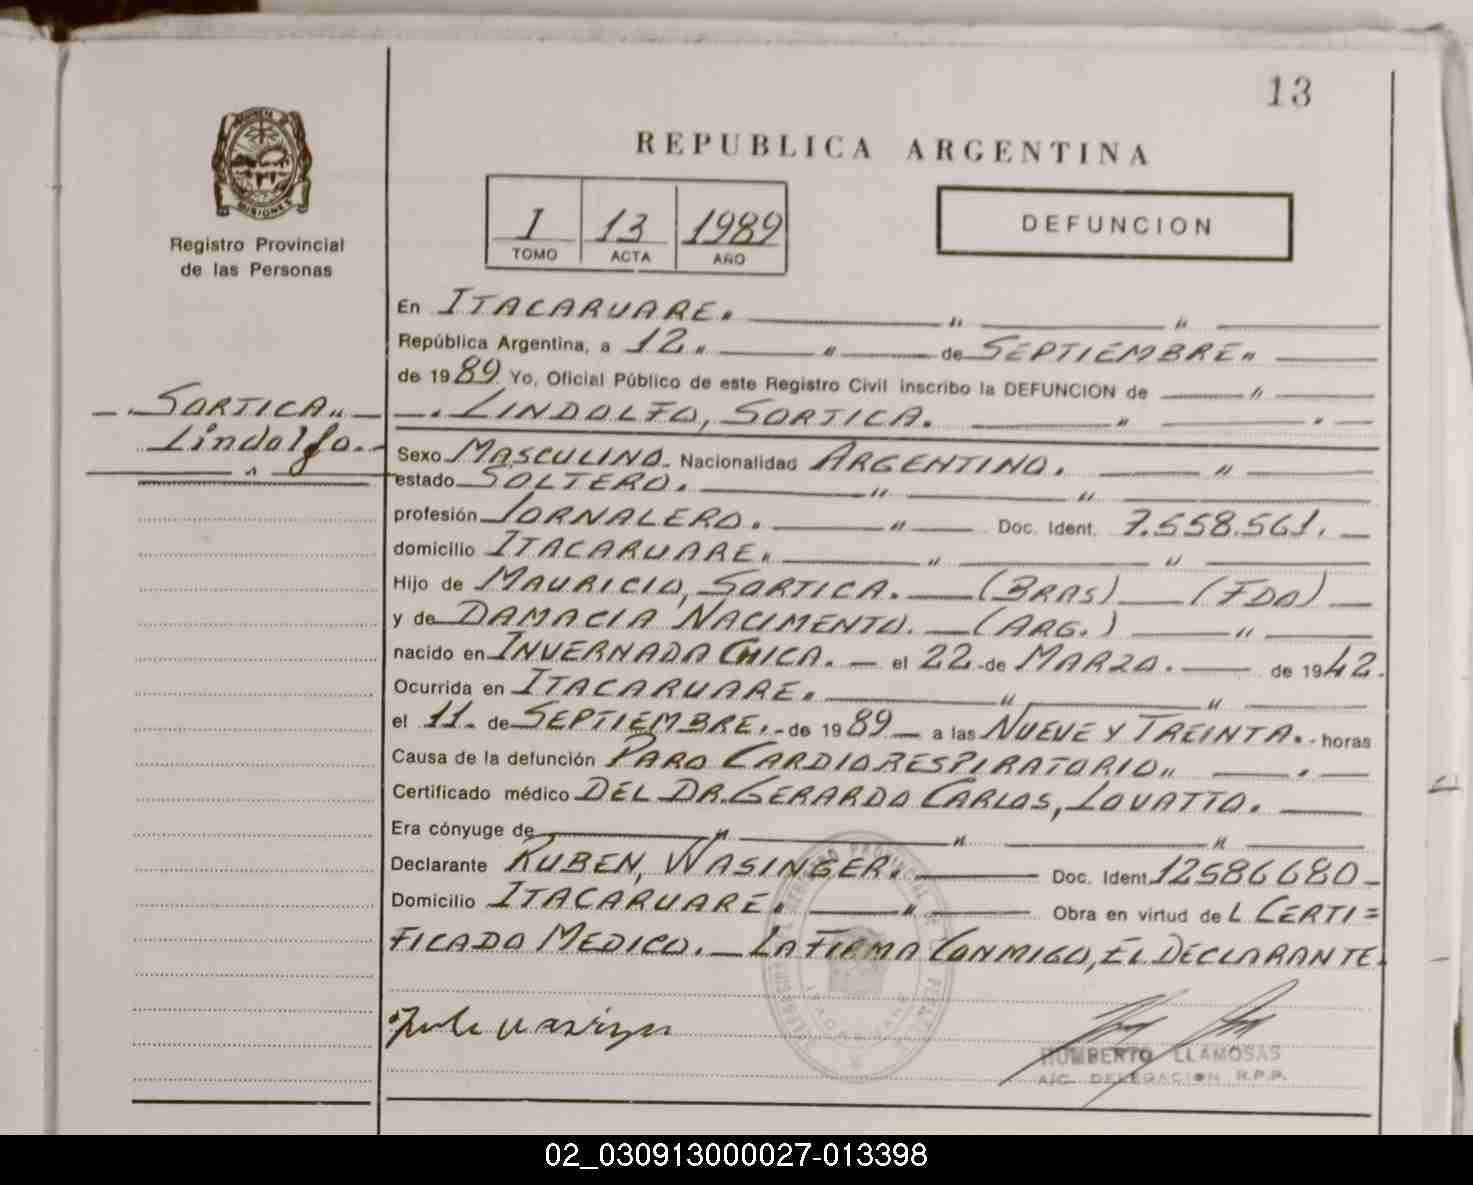 13
REPUBLICA ARGENTINA
PROVINCIA DE
MISIONES
Registro Provincial
de las Personas
I 13 1989
TOMO ACTA AÑO
DEFUNCION
En ITACARUARE.
República Argentina, a 12 de SEPTIEMBRE
de 1989 Yo, Oficial Público de este Registro Civil inscribo la DEFUNCION de
SORTICA
Lindolfo.
LINDOLFO, SORTICA.
Sexo MASCULINO. Nacionalidad ARGENTINO.
estado SOLTERO.
profesión JORNALERO. Doc. Ident. 7.558.561.
domicilio ITACARUARE
Hijo de MAURICIO, SORTICA. (BRAS) (FDO)
y de DAMACIA NACIMENTO. (ARG.)
nacido en INVERNADA CHICA. el 22 de MARZO. de 1942.
Ocurrida en ITACARUARE.
el 11 de SEPTIEMBRE. de 1989 a las NUEVE Y TREINTA. horas
Causa de la defunción PARO CARDIORESPIRATORIO
Certificado médico DEL DR. GERARDO CARLOS, LOVATTO.
Era cónyuge de
Declarante RUBEN, WASINGER. Doc. Ident. 12586680
Domicilio ITACARUARE. Obra en virtud de L CERTI=
FICADO MEDICO. LA FIRMA CONMIGO, EL DECLARANTE.
HUMBERTO LLAMOSAS
A/C. DELEGACION R.P.P.
02_030913000027-013398